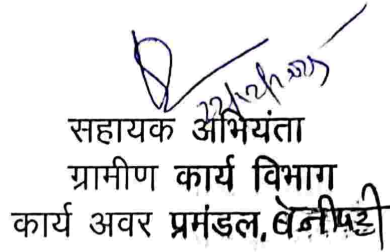 22/12/2025
सहायक अभियंता
ग्रामीण कार्य विभाग
कार्य अवर प्रमंडल, बेनीपट्टी